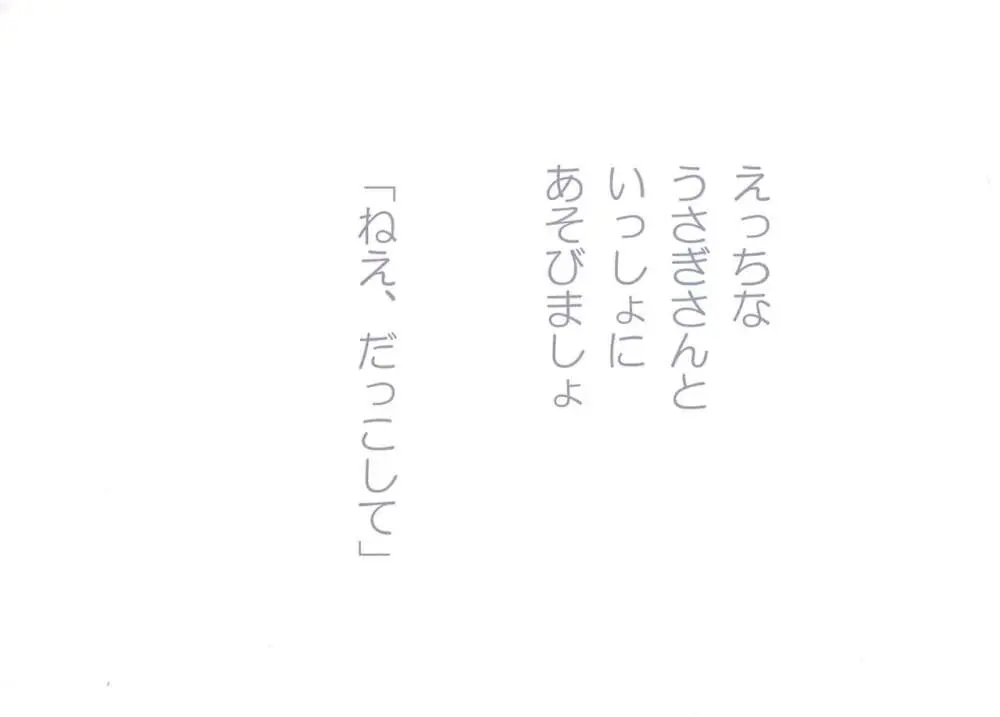 えっちな
うさぎさんと
いっしょに
あそびましょ
「ねえ、だっこして」